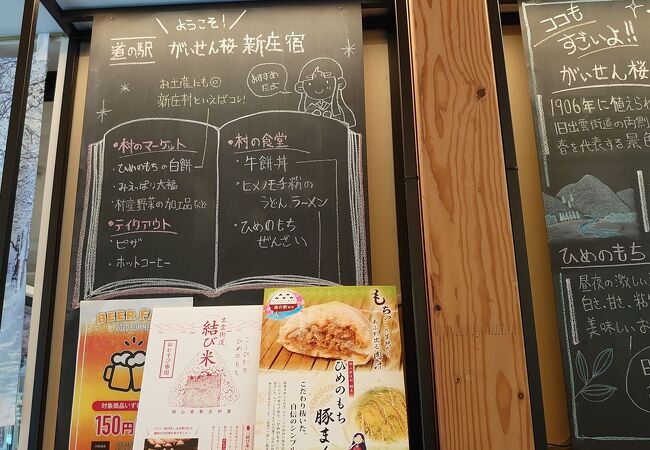 ようこそ!
道の駅 がいせん桜 新庄宿
お土産にも◎
新庄村といえばコレ!
おすすめ
だよ
・村のマーケット
・ひめのもちの白餅
・みえっぱり大福
・村産野菜の加工品など
・テイクアウト
・ピザ
・ホットコーヒー
・村の食堂
・牛餅丼
・ヒメノモチ粉の
うどん、ラーメン
・ひめのもち
ぜんざい
ココも
すごいよ!!
がいせん桜
1906年に植えられ
旧出雲街道の両側
春を代表する景色
ひめのもち
昼夜の激しい
白さ、甘さ、粘
美味しいお
BEER FA
2020 SUMMER
対象商品いずれ
150円
出雲街道
結び米
こしひかり
ひめのもち
おむすび専用
岡山県新庄村産
もち
ひめのもち
豚まん
こだわり抜いた、
自信のシンプル